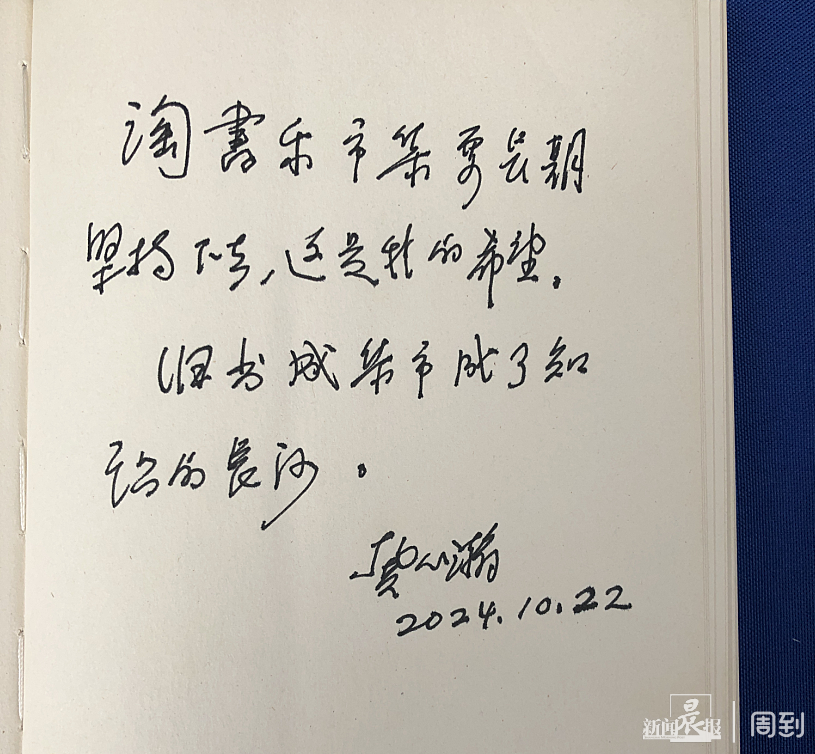 淘書乐市集要长期
坚持下去,这是我的希望。
旧书成集市成了知
识的長河。
龚心瀚
2024.10.22
新闻晨报 周到